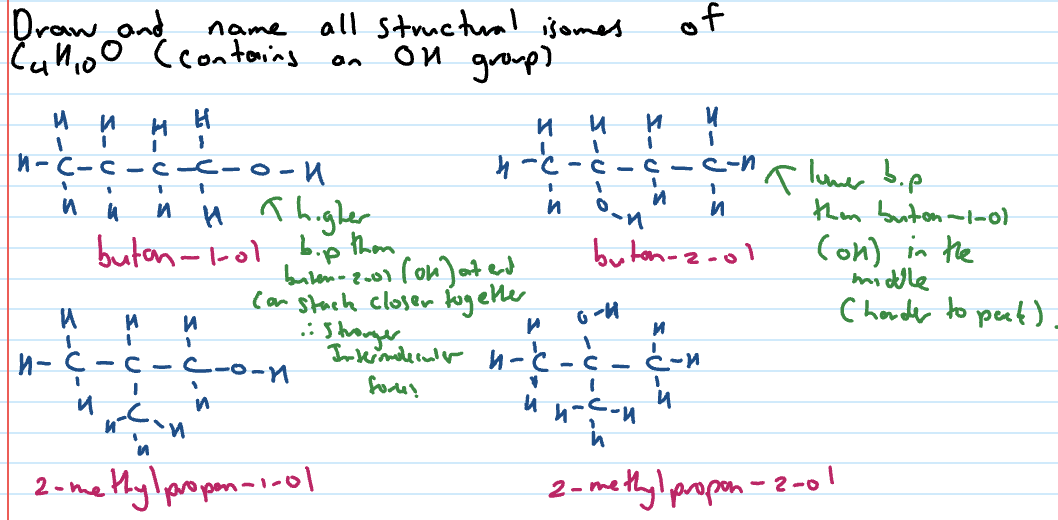 Draw and name all structural isomes of
C4H10O (contains an OH group)
H H H H
H-C-C-C-C-O-H
H H H H
butan-1-ol
↑ higher
b.p than
butan-2-ol (OH) at end
Can stack closer together
∴ stronger
Intermolecular
forces
H H H H
H-C-C-C-C-H
H O-H H H
butan-2-ol
↑ lower b.p
than butan-1-ol
(OH) in the
middle
(harder to pack).
H H H
H-C-C-C-O-H
H H
H-C-H
H
2-methylpropan-1-ol
H O-H H
H-C-C-C-H
H H
H-C-H
H
2-methylpropan-2-ol